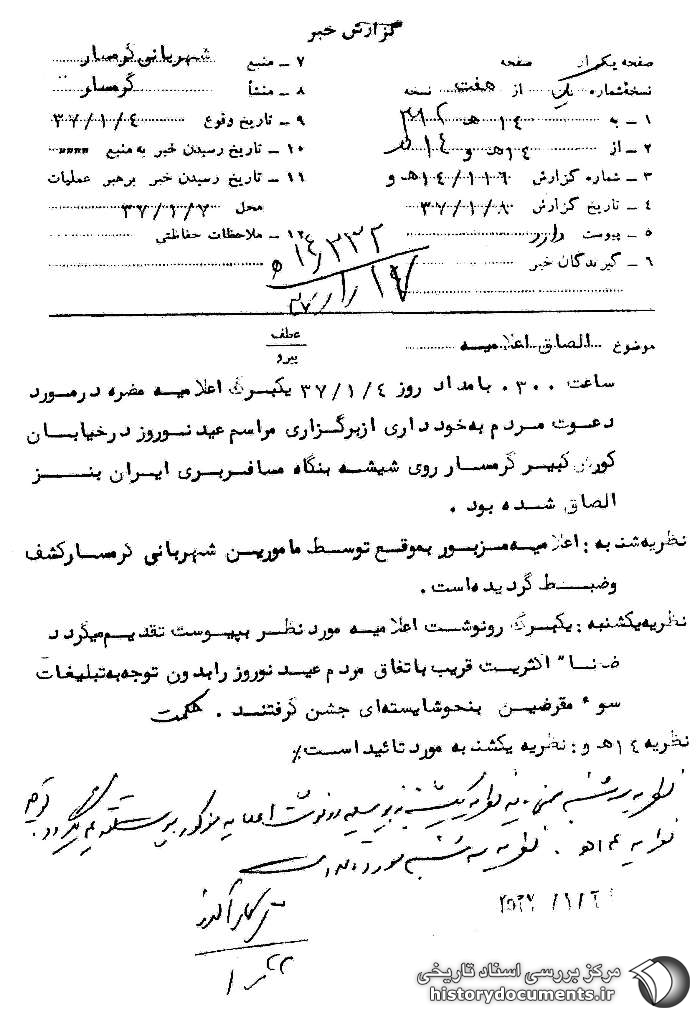 گزارش خبر
صفحه یک از صفحه
نسخه شماره یک از هفت نسخه
۱ ـ به ۱۴ هـ ۳۱۲
۲ ـ از ۱۴هـ و
۳ ـ شماره گزارش ۱۴/۱۱۶هـ و
۴ ـ تاریخ گزارش ۳۷/۱/۸
۵ ـ پیوست دارد
۶ ـ گیرندگان خبر
۷ ـ منبع شهربانی گرمسار
۸ ـ منشأ گرمسار
۹ ـ تاریخ وقوع ۳۷/۱/۴
۱۰ ـ تاریخ رسیدن خبر به منبع
۱۱ ـ تاریخ رسیدن خبر برهبر عملیات
محل ۳۷/۱/۷
۱۲ ـ ملاحظات حفاظتی
موضوع الصاق اعلامیه
عطف
پیرو
ساعت ۳۰۰ بامداد روز ۳۷/۱/۴ یکبرگ اعلامیه مضره درمورد
دعوت مردم به خود داری ازبرگزاری مراسم عید نوروز درخیابان
کورش کبیر گرمسار روی شیشه بنگاه مسافربری ایران بنز
الصاق شده بود .
نظریه شنبه : اعلامیه مزبور بموقع توسط مامورین شهربانی گرمسار کشف
وضبط گردیده است .
نظریه یکشنبه : یکبرگ رونوشت اعلامیه مورد نظر بپیوست تقدیم میگردد
ضمنا" اکثریت قریب باتفاق مردم عید نوروز رابدون توجه به تبلیغات
سوء مقرضین بنحو شایسته‌ای جشن گرفتند . حکمت
نظریه ۱۴ هـ و : نظریه یکشنبه مورد تائید است٪
نظریه سه شنبه
نظریه ۱۴هـ . نظریه سه شنبه مورد
مرکز بررسی اسناد تاریخی
historydocuments.ir